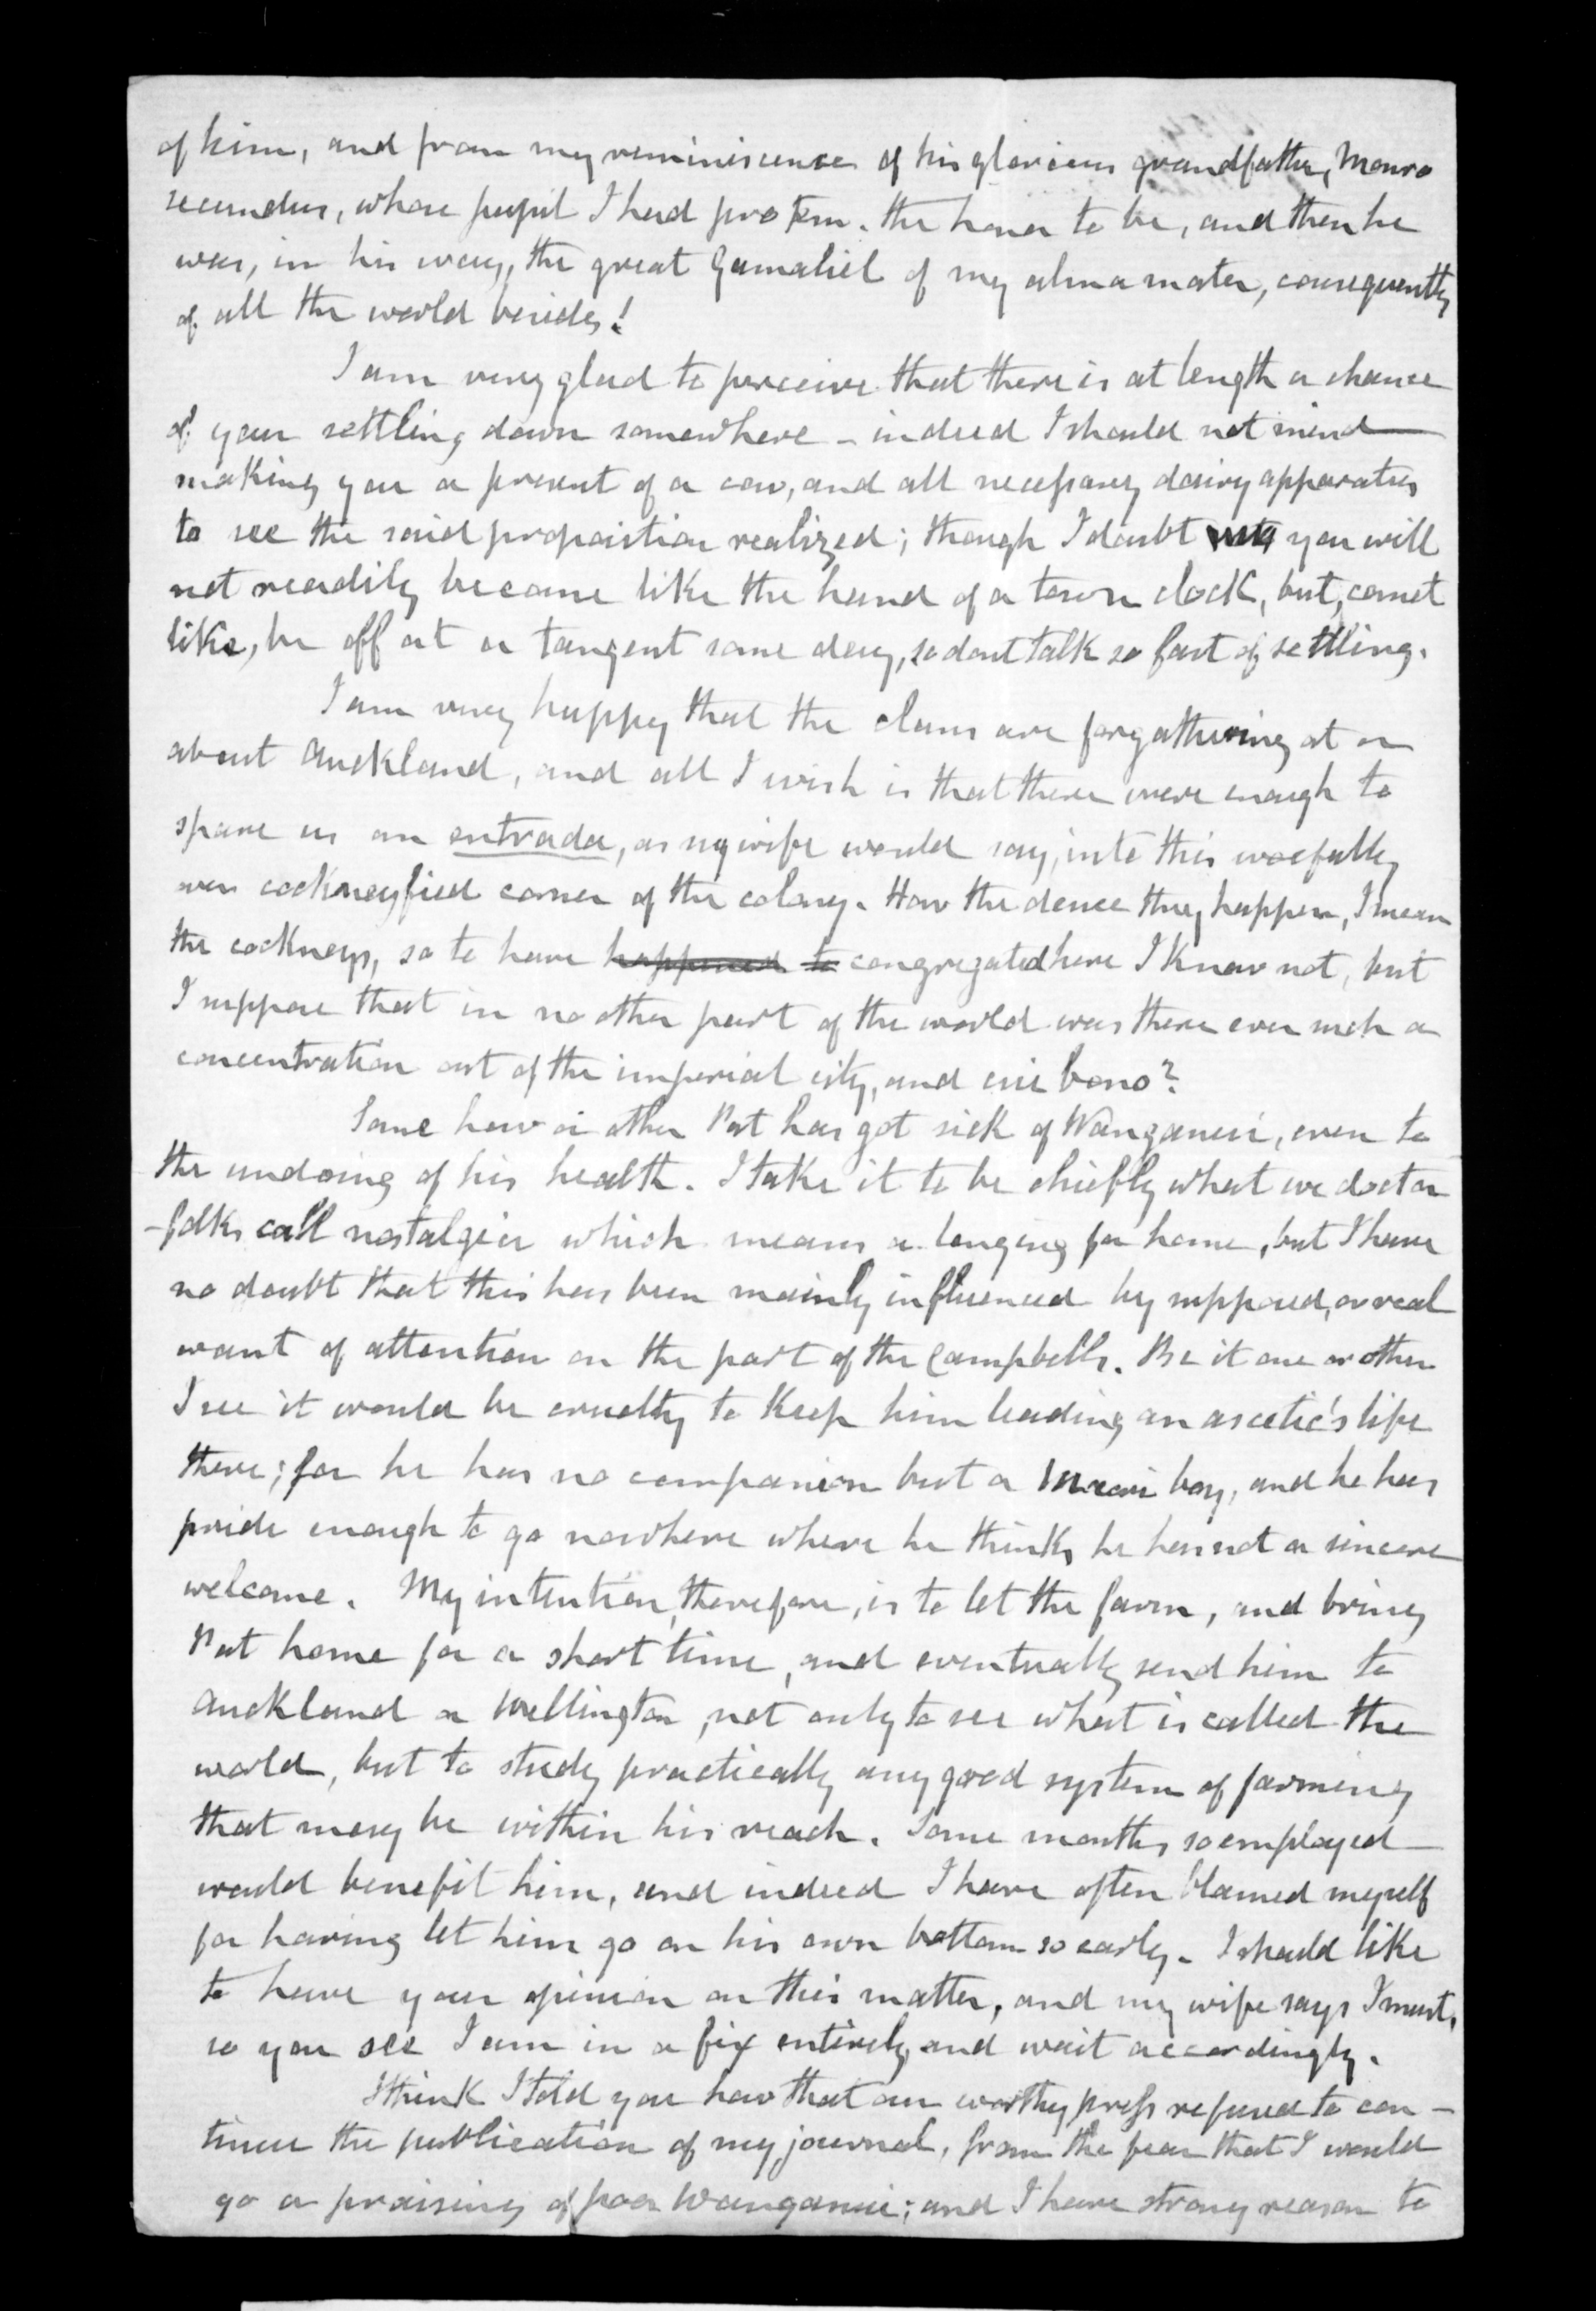 of him, and from my reminiscence of his glorious grandfather, Monro
secundus, whose pupil I had pro tem. the honor to be, and then he
was, in his way, the great Gamaliel of my alma mater, consequently
of all the world besides!
I am very glad to perceive that there is at length a chance
of your settling down somewhere - indeed I should not mind
making you a present of a cow, and all necessary dairy apparatus
to see the said proposition realized; though I doubt you will
not readily become like the hand of a town clock, but, comet
like, be off at a tangent some day, so dont talk so fast of settling.
I am very happy that the clans are forgathering at or
about Auckland, and all I wish is that there were enough to
spare us an entrada, as my wife would say, into this woefully
over cockneyfied corner of the colony. How the deuce they happen, I mean
the cockneys, so to have happened to congregated here I know not, but
I suppose that in no other part of the world was there ever such a
concentration out of the imperial city, and cui bono?
Some how or other Pat has got sick of Wanganui, even to
the undoing of his health. I take it to be chiefly what we doctor
-folks call nostalgia which means a longing for home, but I have
no doubt that this has been mainly influenced by supposed, or real
want of attention on the part of the Campbells. Be it one or other
I see it would be cruelty to keep him leading an ascetic's life
there; for he has no companion but a Maori boy, and he has
pride enough to go nowhere where he thinks he has not a sincere
welcome. My intention, therefore, is to let the farm, and bring
Pat home for a short time, and eventually send him to
Auckland or Wellington, not only to see what is called the
world, but to study practically any good system of farming
that may be within his reach. Some months so employed
would benefit him, and indeed I have often blamed myself
for having let him go on his own bottom so early. I should like
to have your opinion on this matter, and my wife says I must,
so you see I am in a fix entirely and wait accordingly.
I think I told you how that our worthy press refused to con-
tinue the publication of my journal, from the fear that I would
go a praising of poor Wanganui; and I have strong reason to